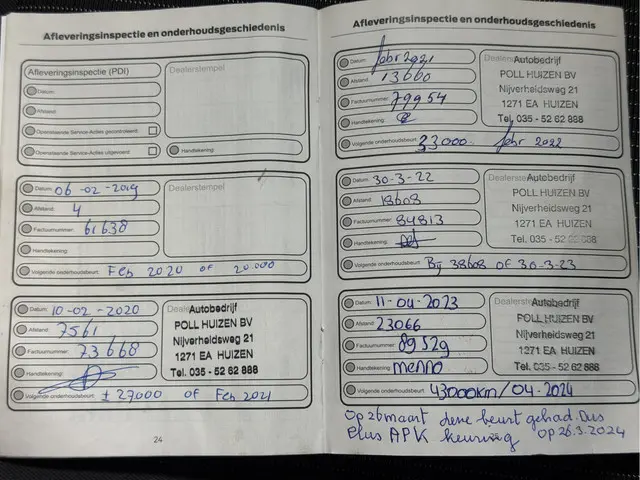 Afleveringsinspectie en onderhoudsgeschiedenis
Afleveringsinspectie (PDI)
Dealerstempel
Datum:
Afstand:
Factuurnummer:
Openstaande Service-Acties gecontroleerd:
Openstaande Service-Acties uitgevoerd:
Handtekening:
Datum: 06-02-2019
Dealerstempel
Afstand: 4
Factuurnummer: 61638
Handtekening:
Volgende onderhoudsbeurt: Feb 2020 of 20.000
Datum: 10-02-2020
Autobedrijf
POLL HUIZEN BV
Nijverheidsweg 21
1271 EA HUIZEN
Tel. 035 - 52 62 888
Afstand: 7561
Factuurnummer: 73668
Handtekening:
Volgende onderhoudsbeurt: ± 27000 of Feb 2021
24
Afleveringsinspectie en onderhoudsgeschiedenis
Datum: febr 2021
Autobedrijf
POLL HUIZEN BV
Nijverheidsweg 21
1271 EA HUIZEN
Tel. 035 - 52 62 888
Afstand: 13660
Factuurnummer: 79954
Handtekening:
Volgende onderhoudsbeurt: 33000 febr 2022
Datum: 30-3-22
Autobedrijf
POLL HUIZEN BV
Nijverheidsweg 21
1271 EA HUIZEN
Tel. 035 - 52 62 888
Afstand: 18608
Factuurnummer: 84813
Handtekening:
Volgende onderhoudsbeurt: Bij 38608 of 30-3-23
Datum: 11-04-2023
Autobedrijf
POLL HUIZEN BV
Nijverheidsweg 21
1271 EA HUIZEN
Tel. 035 - 52 62 888
Afstand: 23066
Factuurnummer: 89529
Handtekening: menno
Volgende onderhoudsbeurt: 43000km/04-2024
Op 26 maart deze beurt gehad. Dus
Plus APK keuring op 26.3.2024